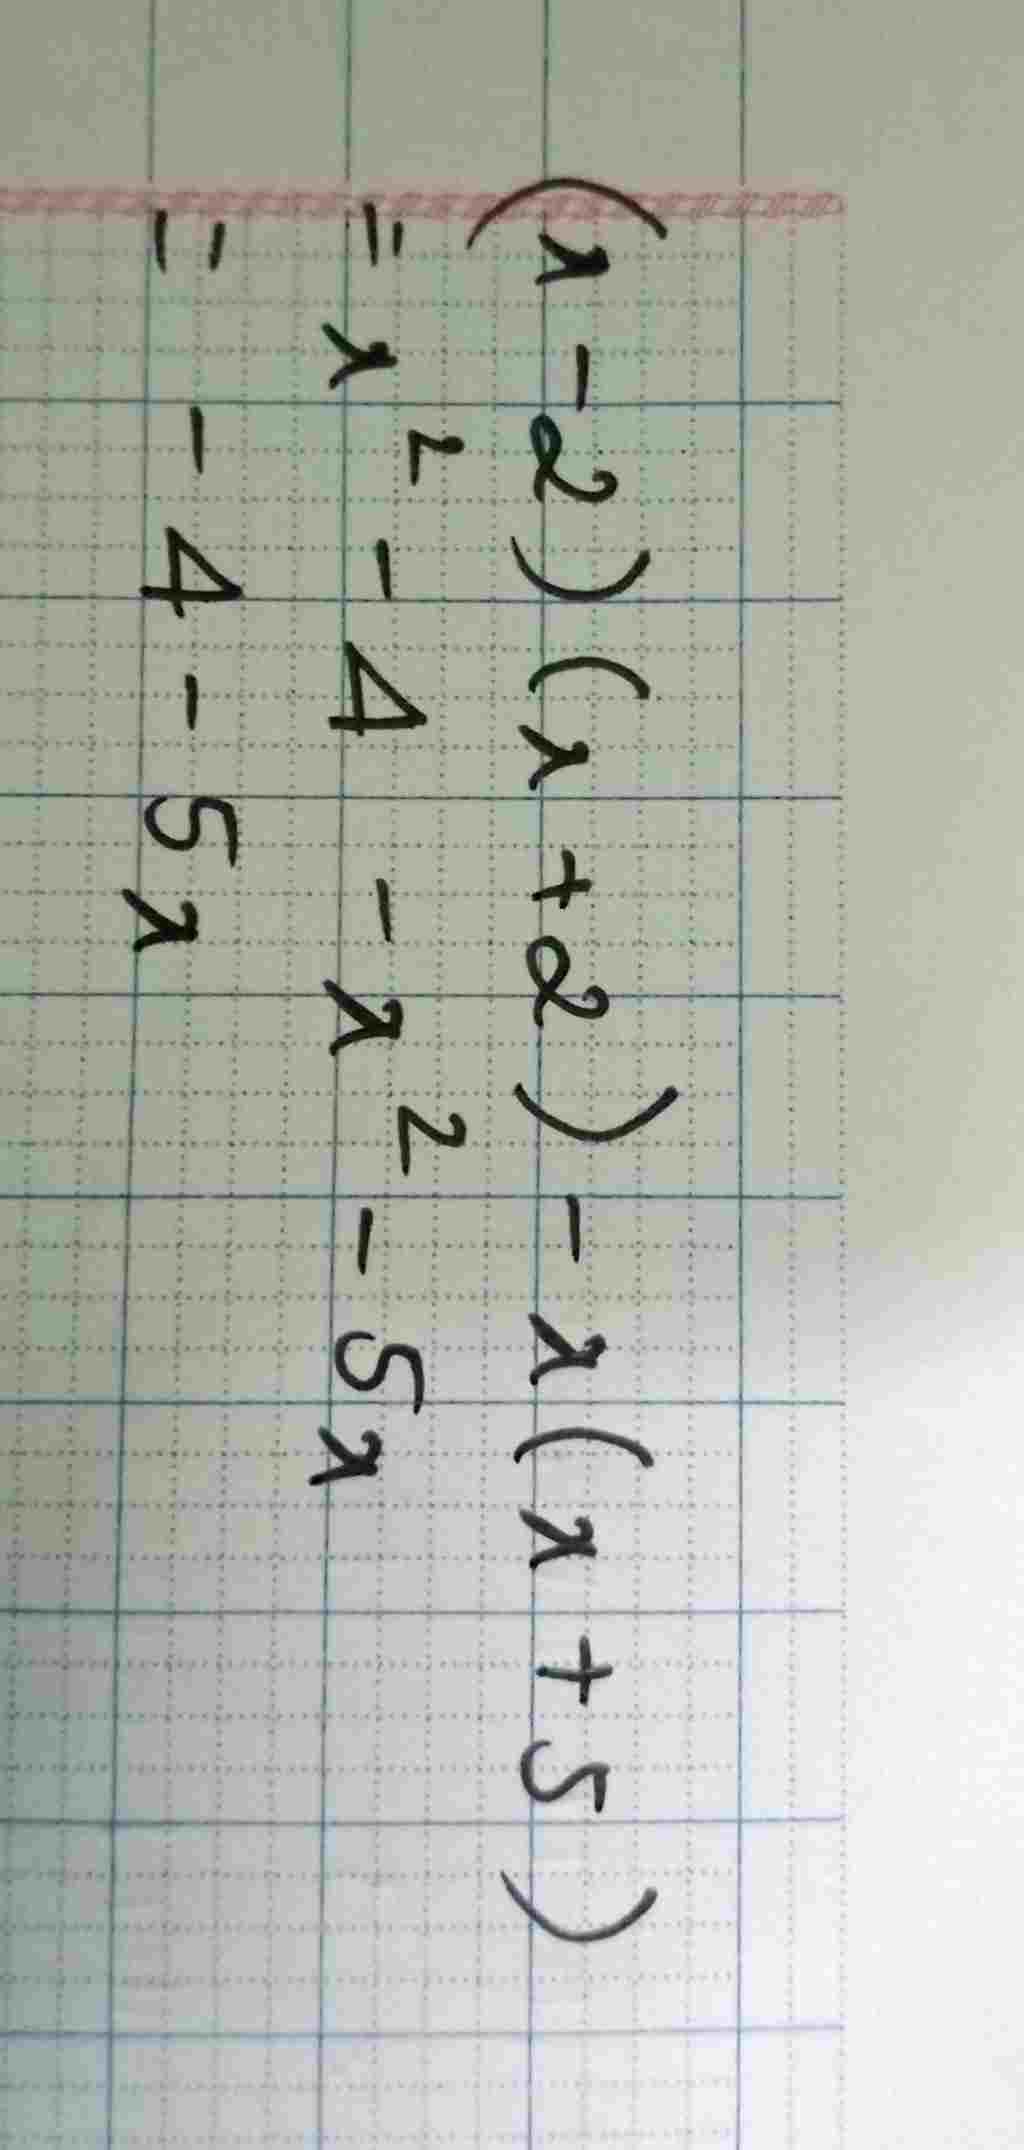 (x - 2)(x + 2) - x(x + 5)
= x² - 4 - x² - 5x
= - 4 - 5x